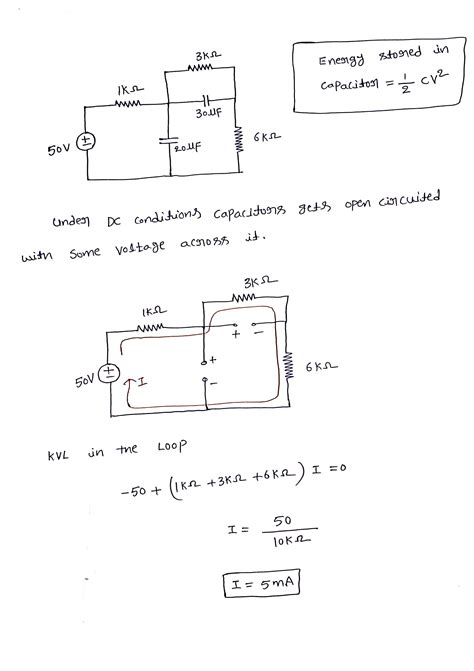 3KΩ
Energy stored in
capacitor = 1/2 CV²
1KΩ
30µF
50V
20µF
6KΩ
Under DC conditions capacitors gets open circuited
with some voltage across it.
3KΩ
1KΩ
+ -
50V
I
+
-
6KΩ
KVL in the Loop
-50 + (1KΩ +3KΩ +6KΩ) I = 0
I = 50/10KΩ
I = 5mA